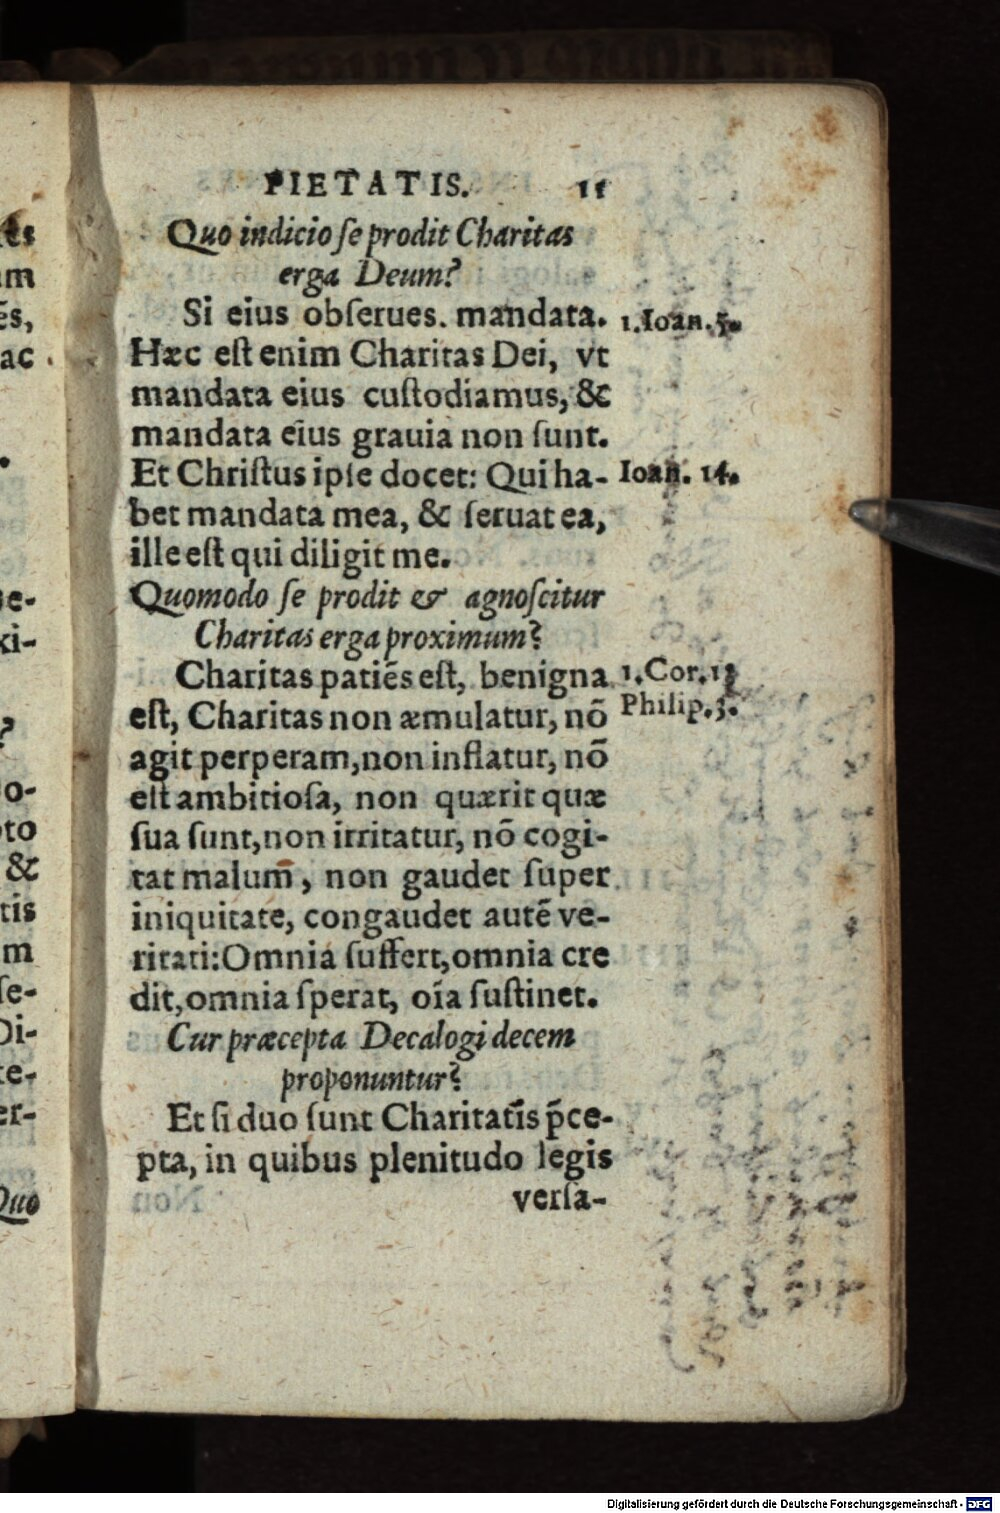 PIETATIS. 11
Quo indicio ſe prodit Charitas
erga Deum?
Si eius obſerues. mandata. 1.Ioan.5.
Hæc eſt enim Charitas Dei, vt
mandata eius cuſtodiamus, &
mandata eius grauia non ſunt.
Et Chriſtus ipſe docet: Qui ha- Ioan. 14.
bet mandata mea, & ſeruat ea,
ille eſt qui diligit me.
Quomodo ſe prodit & agnoſcitur
Charitas erga proximum?
Charitas patiēs eſt, benigna 1.Cor.13
eſt, Charitas non æmulatur, nō Philip.3.
agit perperam, non inflatur, nō
eſt ambitioſa, non quærit quæ
ſua ſunt, non irritatur, nō cogi-
tat malum̄, non gaudet ſuper
iniquitate, congaudet autē ve-
ritati: Omnia ſuffert, omnia cre
dit, omnia ſperat, oīa ſuſtinet.
Cur præcepta Decalogi decem
proponuntur?
Et ſi duo ſunt Charitatis p̄ce-
pta, in quibus plenitudo legis
verſa-
ts
am
ēs,
ac
.
e-
xi-
?
o-
to
&
tis
m
ſe-
Di-
te-
er-
Quo
Digitalisierung gefördert durch die Deutsche Forschungsgemeinschaft - DFG